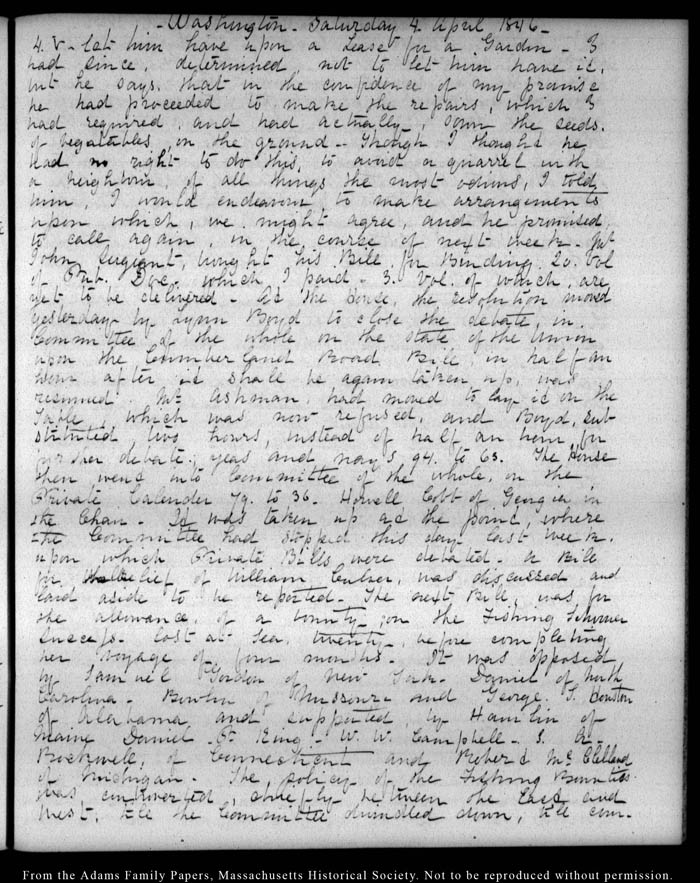 Washington. Saturday 4. April 1846.
4. V - let him have upon a Lease for a Garden - I
had since, determined, not to let him have it,
but he says, that in the confidence of my promise
he had proceeded to make the repairs, which I
had required, and had actually, sown the seeds,
of vegatables, on the ground - Though I thought he
had no right to do this, to avoid a quarrel with
a neighbour, of all things the most odious, I told
him, I would endeavour, to make arrangements
upon which, we might agree, and he promised,
to call again, in the course of next week.
John Sergeant, brought his Bill for Binding 20. Vol
of Pub. Doc, which I paid - 3. Vol. of which, are
yet to be delivered - At the House, the resolution moved
yesterday by Lynn Boyd to close the debate, in
Committee of the whole on the state of the Union
upon the Cumberland Road Bill, in half an
hour after it shall be again taken up, was
resumed. Mr Ashman, had moved to lay it on the
Table, which was now refused, and Boyd, sub-
stituted two hours, instead of half an hour, for
further debate; yeas and nays 94. to 63. The House
then went into Committee of the whole, on the
Private Calender 79. to 36. Howell Cobb of Georgia in
the Chair - It was taken up at the point, where
the Committee had stopped this day last week.
upon which Private Bills were debated. A Bill
for relief of William Culver, was discussed and
laid aside to be reported - The next Bill, was for
the allowance, of a bounty, on the Fishing Schooner
Success. lost at Sea, twenty, before completing
her voyage of four months. It was opposed
by Samuel Gordon of New York - Daniel of North
Carolina - Bowlin of Missouri and George, S. Houston
of Alabama and supported, by Hamlin of
Maine Daniel P. King - W. W. Campbell - J. A.
Rockwell, of Connecticut and Robert Mc Clelland
of Michigan - The, policy of the Fishing Bounties
was controverted, chiefly between the East and
West; till the Committee dwindled down, till com-
From the Adams Family Papers, Massachusetts Historical Society. Not to be reproduced without permission.